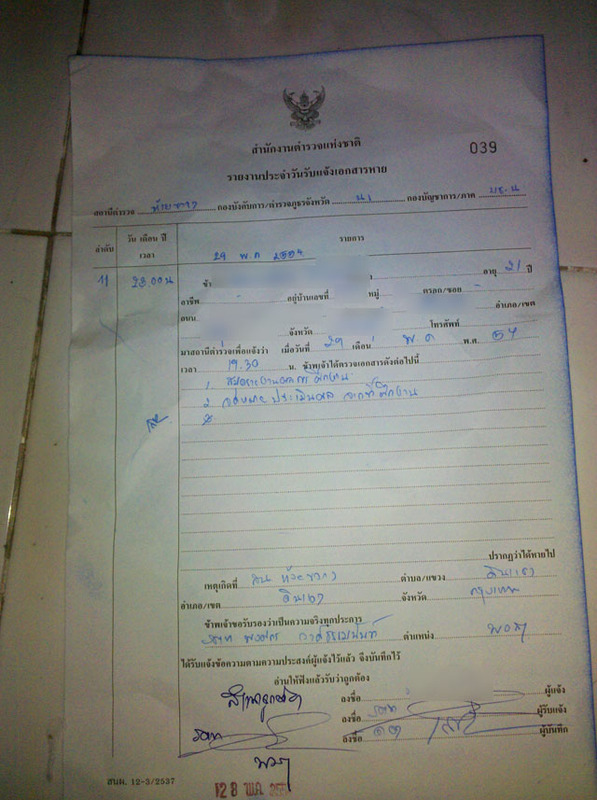 สำนักงานตำรวจแห่งชาติ
039
รายงานประจำวันรับแจ้งเอกสารหาย
สถานีตำรวจ ห้วยขวาง กองบังคับการ/ตำรวจภูธรจังหวัด น.1 กองบัญชาการ/ภาค บช.น
ลำดับ วัน เดือน ปี เวลา รายการ
29 พ.ค 2554
11 23.00 น ข้า อายุ 21 ปี
อาชีพ - อยู่บ้านเลขที่ หมู่ ตรอก/ซอย
ถนน อำเภอ/เขต
จังหวัด โทรศัพท์
มาสถานีตำรวจเพื่อแจ้งว่า เมื่อวันที่ 29 เดือน พ.ค พ.ศ. 54
เวลา 19.30 น. ข้าพเจ้าได้ตรวจเอกสารดังต่อไปนี้
1. สมุดรายงานการฝึกงาน
2. จดหมายประเมินผล จากที่ฝึกงาน
ปรากฏว่าได้หายไป
เหตุเกิดที่ ถนน ห้วยขวาง ตำบล/แขวง ดินแดง
อำเภอ/เขต ดินแดง จังหวัด กรุงเทพ
ข้าพเจ้าขอรับรองว่าเป็นความจริงทุกประการ
ตำแหน่ง พงส
ได้รับแจ้งข้อความตามความประสงค์ผู้แจ้งไว้แล้ว จึงบันทึกไว้
อ่านให้ฟังแล้วรับว่าถูกต้อง
สำเนาถูกต้อง
ลงชื่อ ผู้แจ้ง
ลงชื่อ ผู้รับแจ้ง
ลงชื่อ ผู้บันทึก
พงส
สนผ. 12-3/2537